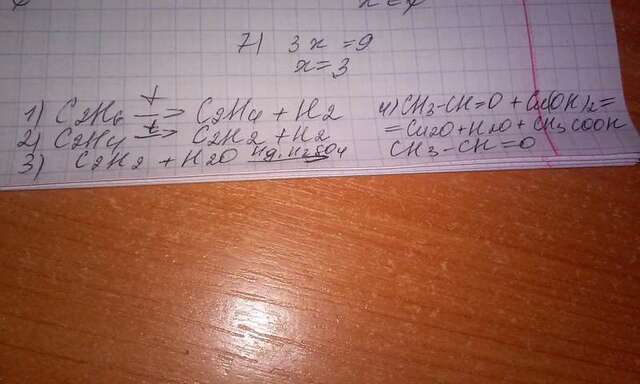 7) 3x = 9
x = 3
1) C2H6 t—> C2H4 + H2
2) C2H4 t—> C2H2 + H2
3) C2H2 + H2O Hg, H2SO4
4) CH3-CH=O + Cu(OH)2 =
= Cu2O + H2O + CH3COOH
CH3-CH=O